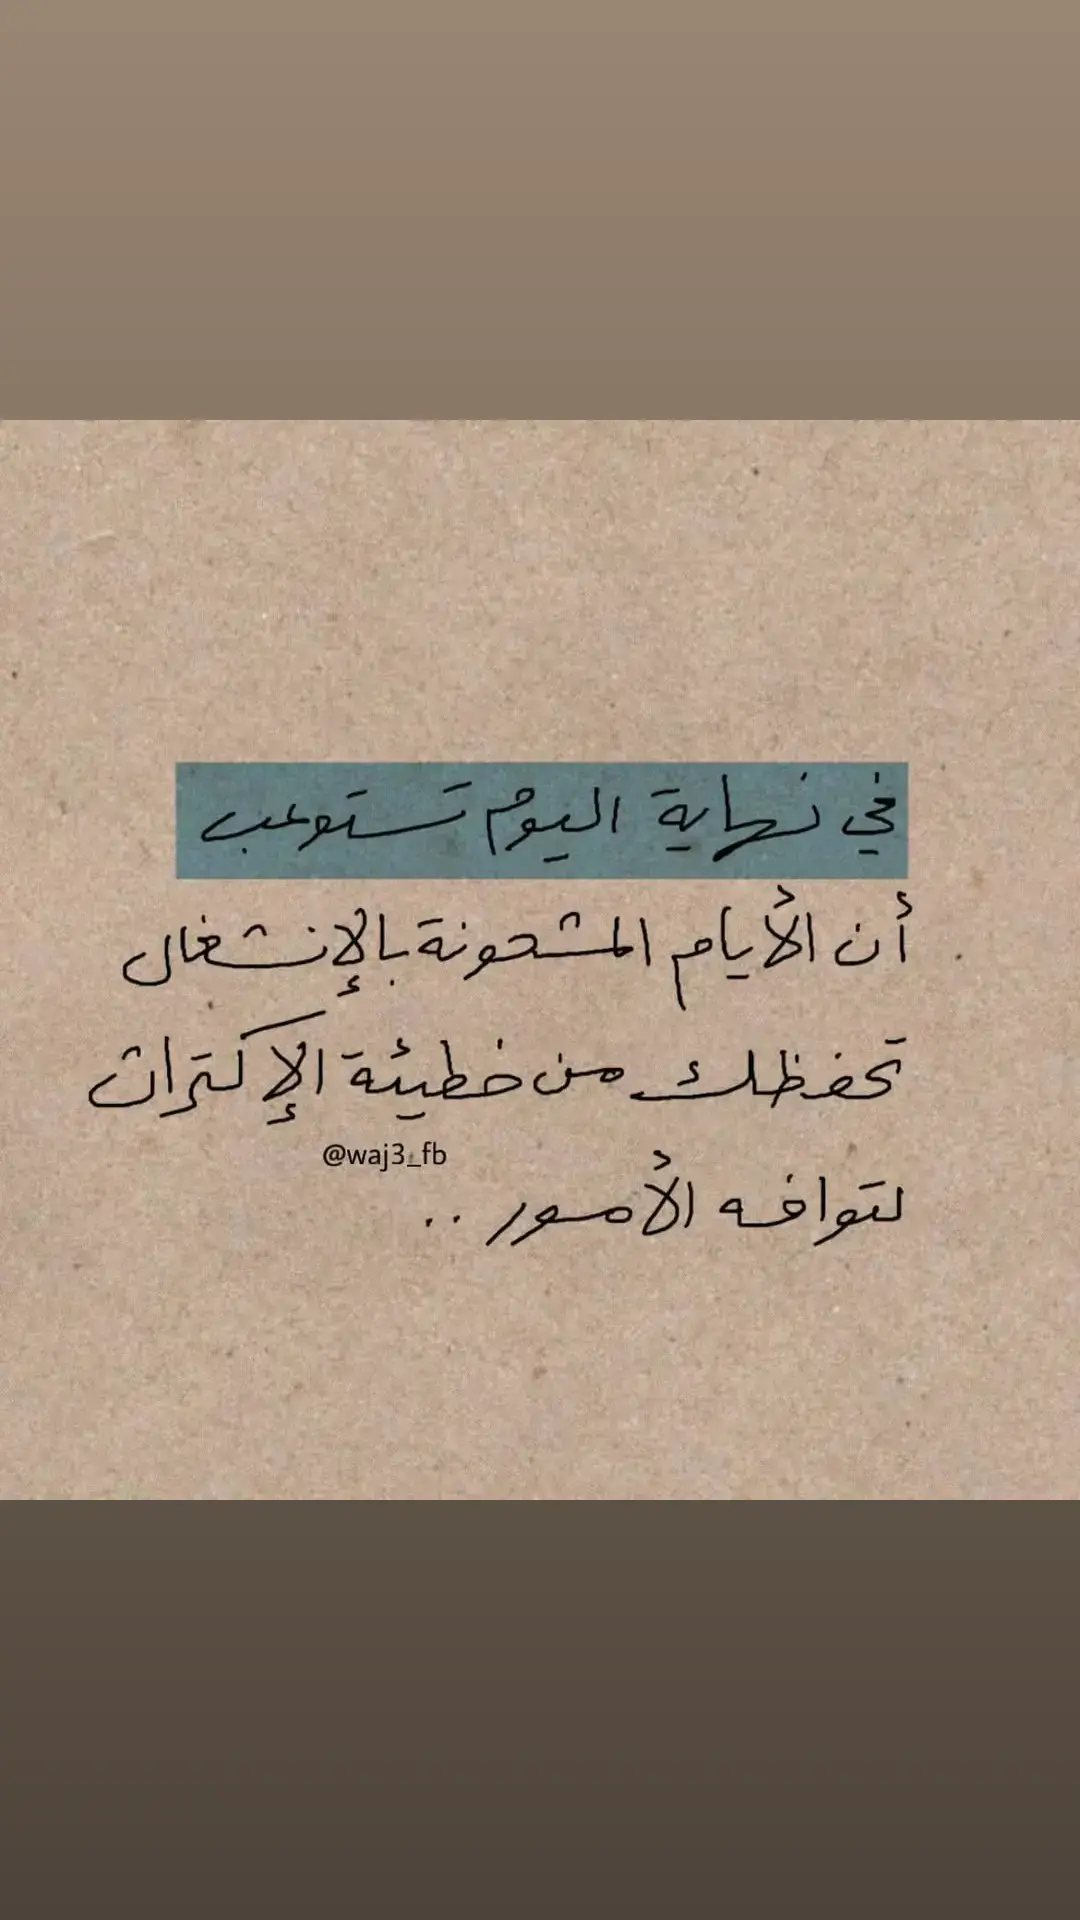 في نهاية اليوم تستوعب
أن الأيام المشحونة بالإنشغال
تحفظك من خطيئة الإكتراث
@waj3_fb
لتوافه الأمور ..